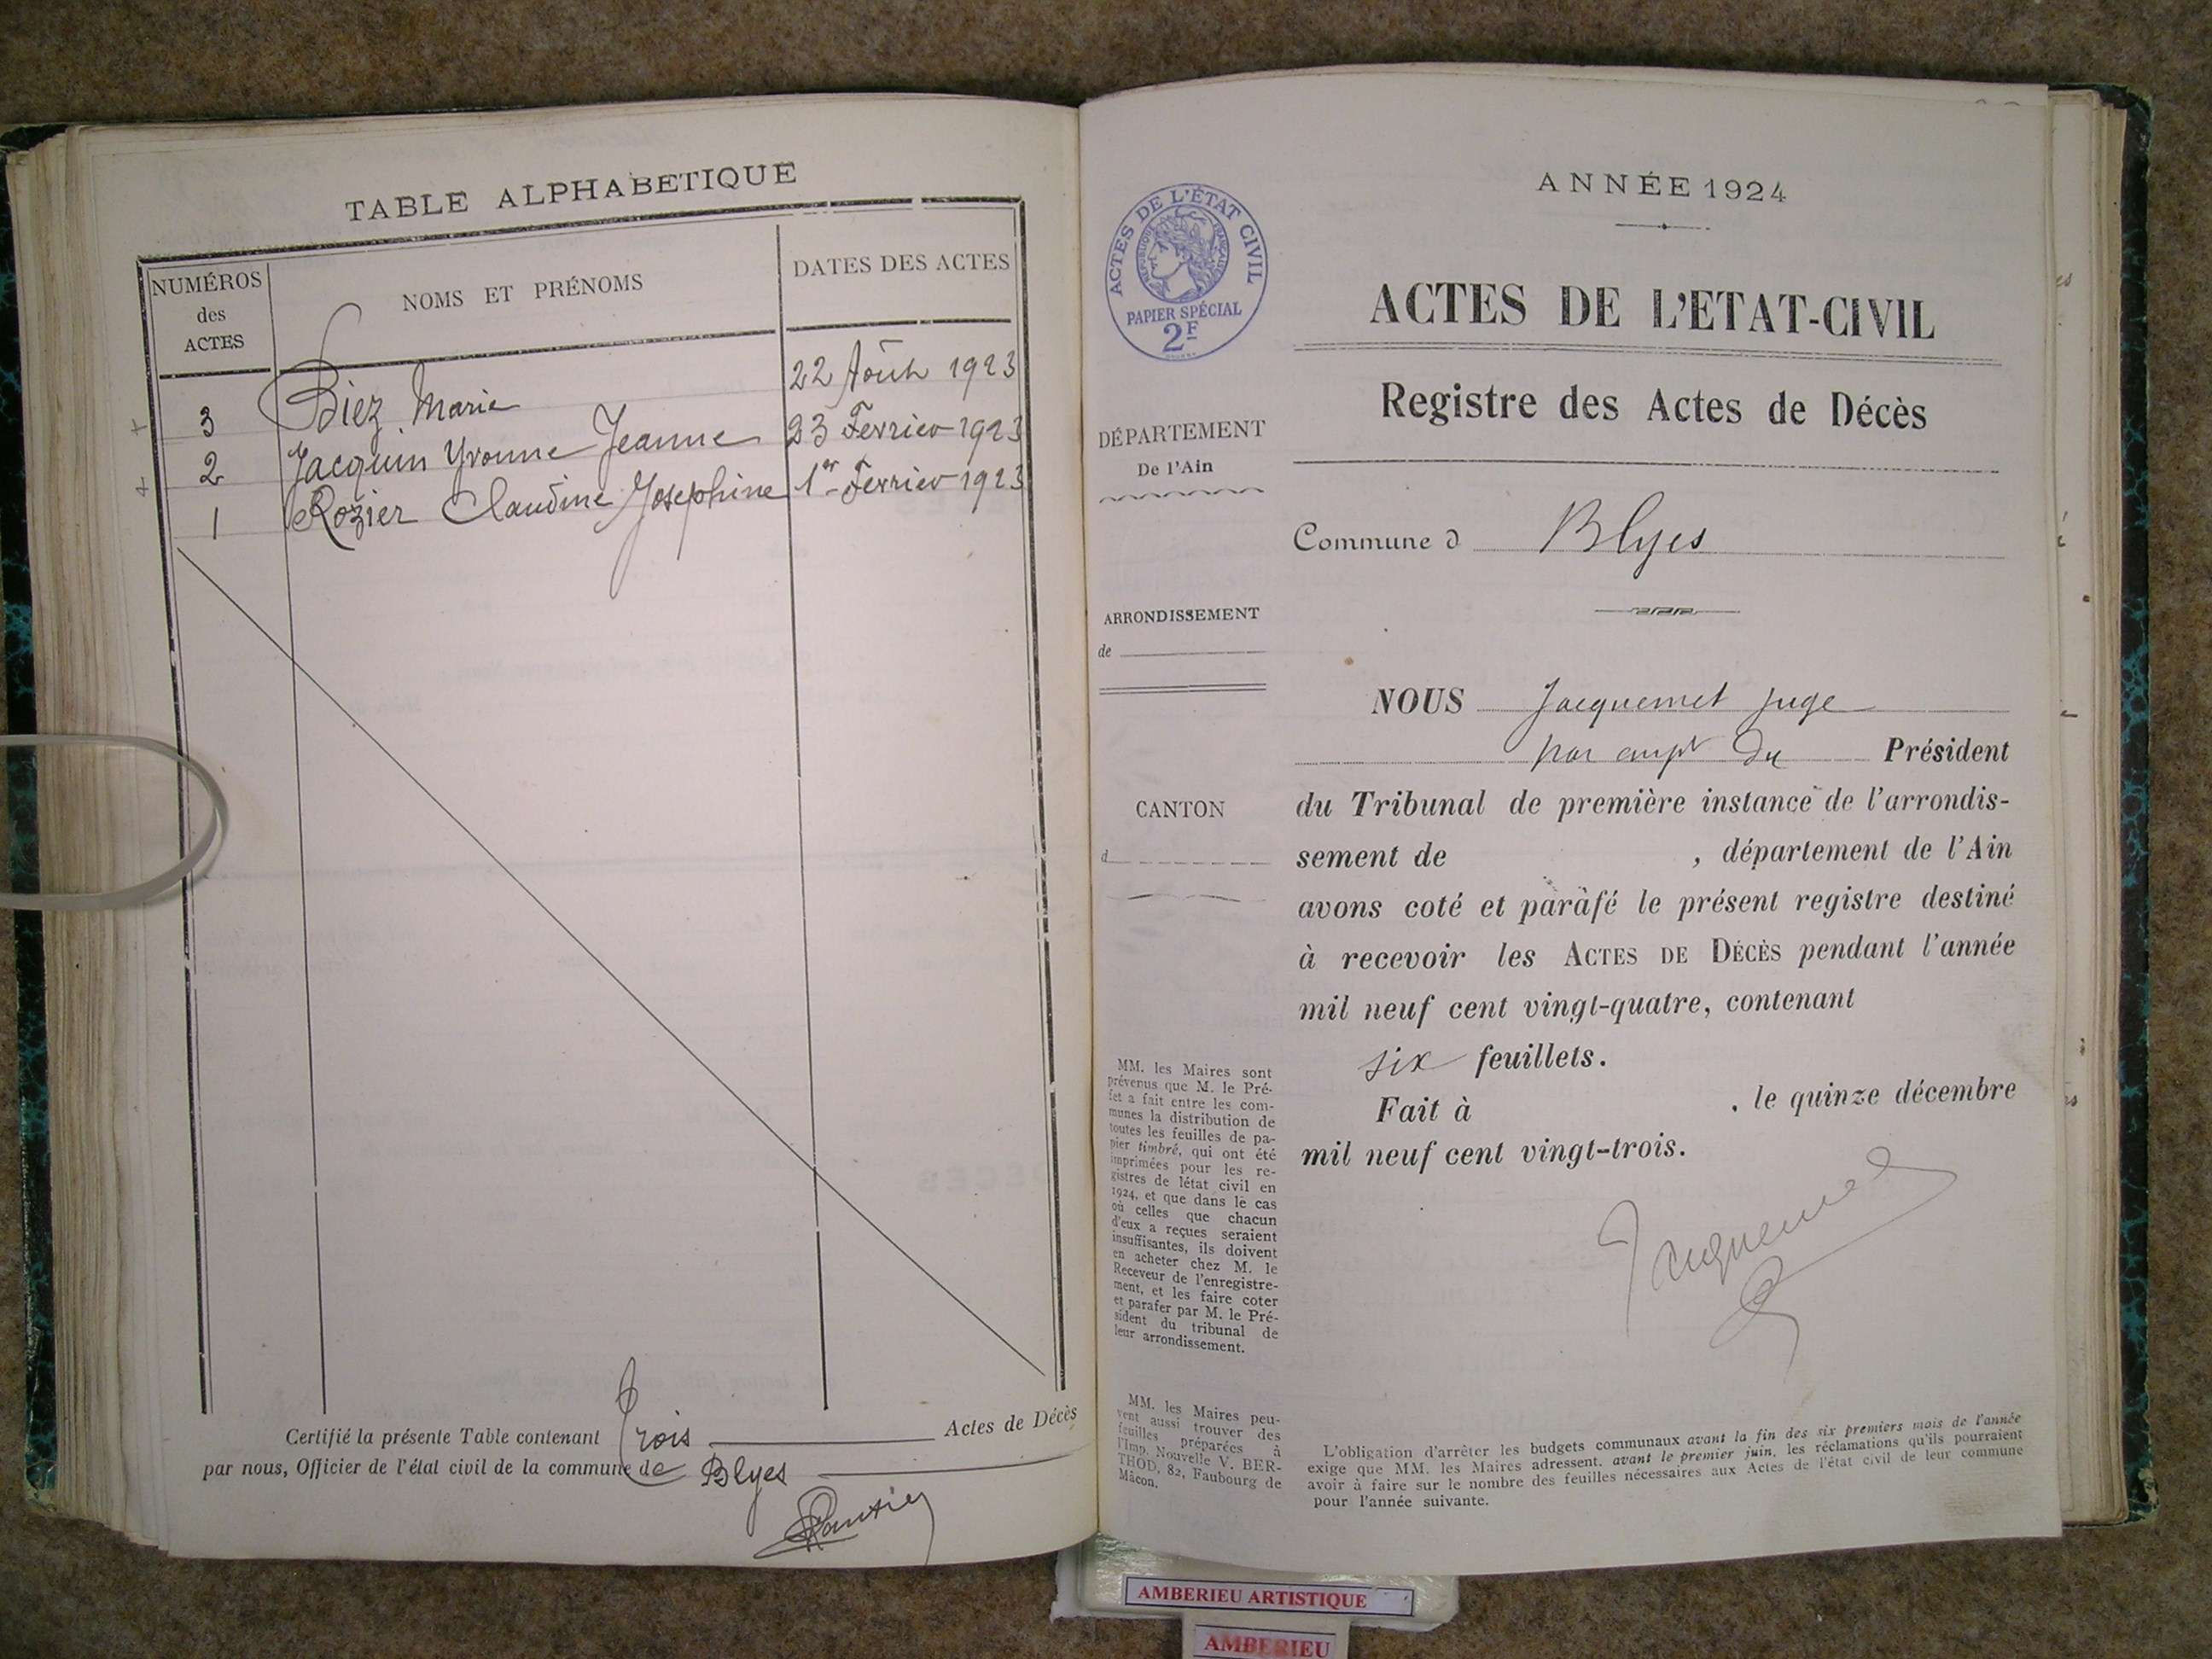 TABLE ALPHABETIQUE
NUMÉROS
des
ACTES
NOMS ET PRÉNOMS
DATES DES ACTES
3 Biez Marie 22 Août 1923
2 Jacquin Yvonne Jeanne 23 Fevrier 1923
1 Rozier Claudine Josephine 1er Fevrier 1923
Certifié la présente Table contenant Trois Actes de Décès
par nous, Officier de l'état civil de la commune de Blyes
ACTES DE L'ÉTAT CIVIL
RÉPUBLIQUE FRANÇAISE
PAPIER SPÉCIAL
2F
DÉPARTEMENT
De l'Ain
ARRONDISSEMENT
de
CANTON
d
MM. les Maires sont
prévenus que M. le Pré-
fet a fait entre les com-
munes la distribution de
toutes les feuilles de pa-
pier timbré, qui ont été
imprimées pour les re-
gistres de létat civil en
1924, et que dans le cas
où celles que chacun
d'eux a reçues seraient
insuffisantes, ils doivent
en acheter chez M. le
Receveur de l'enregistre-
ment, et les faire coter
et parafer par M. le Pré-
sident du tribunal de
leur arrondissement.
MM. les Maires peu-
vent aussi trouver des
feuilles préparées à
l'Imp. Nouvelle V. BER-
THOD, 82, Faubourg de
Mâcon.
ANNÉE 1924
ACTES DE L'ETAT-CIVIL
Registre des Actes de Décès
Commune d Blyes
NOUS Jacquemet juge
par empt du Président
du Tribunal de première instance de l'arrondis-
sement de , département de l'Ain
avons coté et parafé le présent registre destiné
à recevoir les ACTES DE DÉCÈS pendant l'année
mil neuf cent vingt-quatre, contenant
six feuillets.
Fait à , le quinze décembre
mil neuf cent vingt-trois.
Jacquemet
L'obligation d'arrêter les budgets communaux avant la fin des six premiers mois de l'année
exige que MM. les Maires adressent, avant le premier juin, les réclamations qu'ils pourraient
avoir à faire sur le nombre des feuilles nécessaires aux Actes de l'état civil de leur commune
pour l'année suivante.
AMBERIEU ARTISTIQUE
AMBERIEU